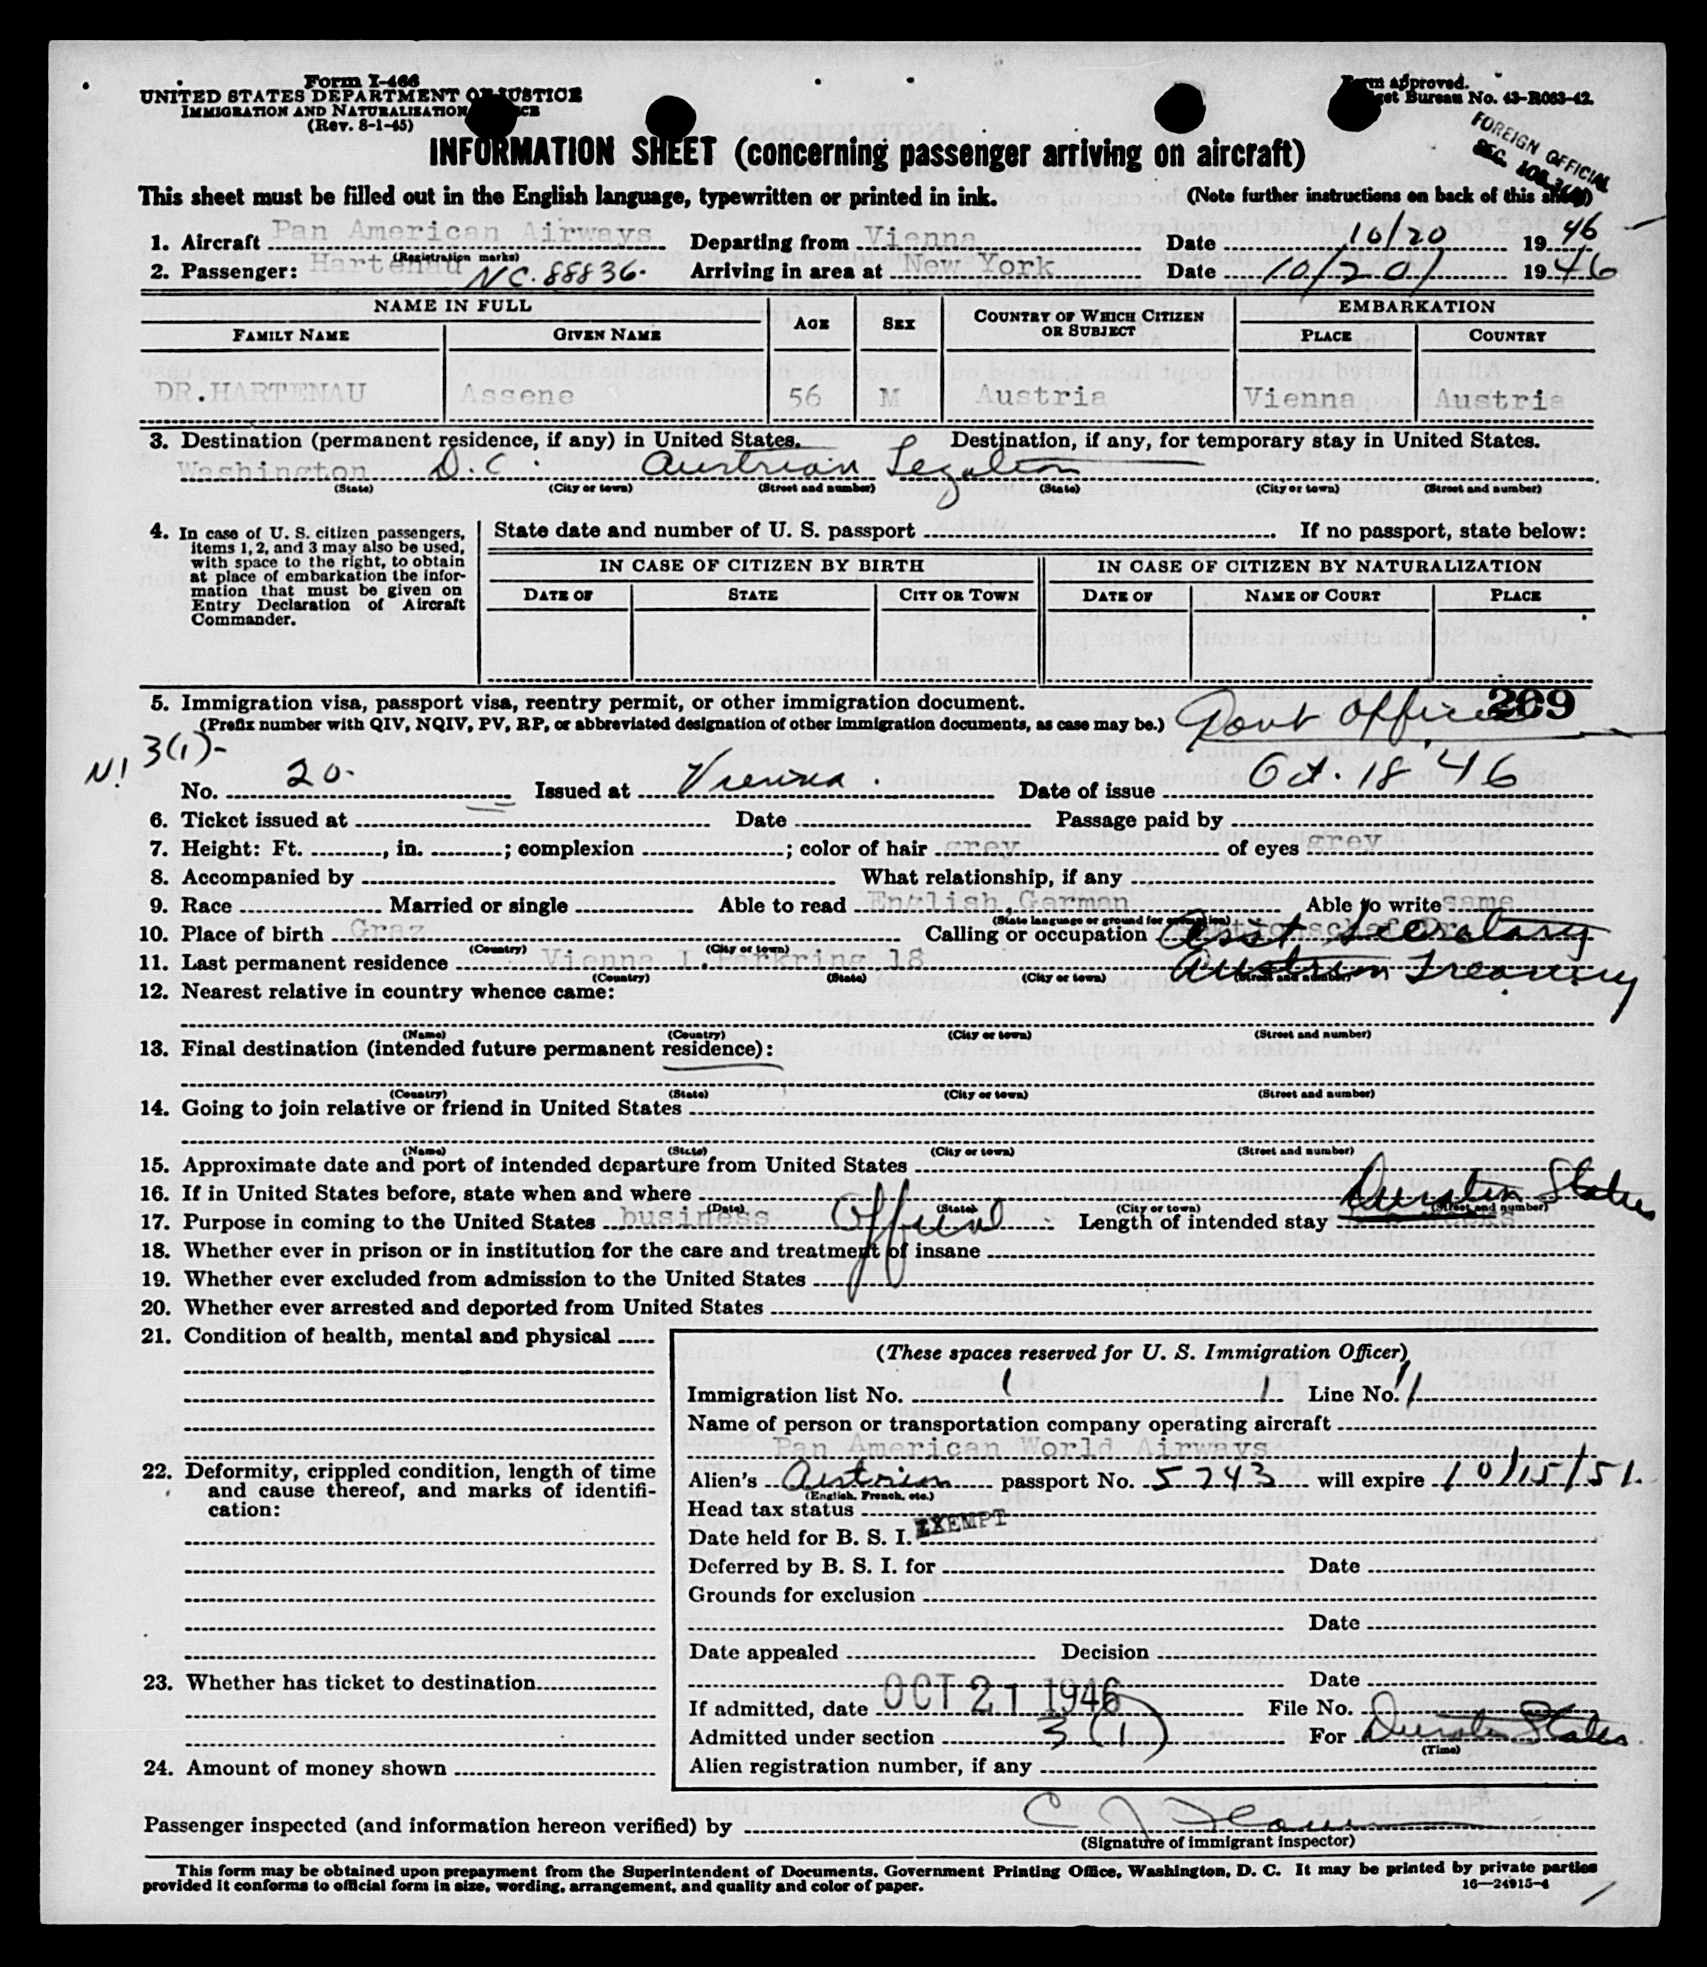 Form I-466
UNITED STATES DEPARTMENT OF JUSTICE
IMMIGRATION AND NATURALIZATION
(Rev. 8-1-45)
Form approved.
Budget Bureau No. 43-R063-42.
FOREIGN OFFICIAL
SEC.
INFORMATION SHEET (concerning passenger arriving on aircraft)
This sheet must be filled out in the English language, typewritten or printed in ink. (Note further instructions on back of this sheet)
1. Aircraft Pan American Airways Departing from Vienna Date 10/20 1946
(Registration marks)
2. Passenger: Hartenau NC. 88836. Arriving in area at New York Date 10/20/ 1946
NAME IN FULL AGE SEX COUNTRY OF WHICH CITIZEN OR SUBJECT EMBARKATION
FAMILY NAME GIVEN NAME PLACE COUNTRY
DR.HARTENAU Assene 56 M Austria Vienna Austria
3. Destination (permanent residence, if any) in United States. Destination, if any, for temporary stay in United States.
Washington D.C. Austrian Legation
(State) (City or town) (Street and number) (State) (City or town) (Street and number)
4. In case of U. S. citizen passengers, items 1, 2, and 3 may also be used, with space to the right, to obtain at place of embarkation the information that must be given on Entry Declaration of Aircraft Commander.
State date and number of U. S. passport If no passport, state below:
IN CASE OF CITIZEN BY BIRTH IN CASE OF CITIZEN BY NATURALIZATION
DATE OF STATE CITY OR TOWN DATE OF NAME OF COURT PLACE
5. Immigration visa, passport visa, reentry permit, or other immigration document.
(Prefix number with QIV, NQIV, PV, RP, or abbreviated designation of other immigration documents, as case may be.) Govt Officer 269
3(1)-
No. 20. Issued at Vienna. Date of issue Oct. 18 46
6. Ticket issued at Date Passage paid by
7. Height: Ft. , in. ; complexion ; color of hair grey of eyes grey
8. Accompanied by What relationship, if any
9. Race Married or single Able to read English, German Able to write same
(State language or ground for exemption)
10. Place of birth Graz Calling or occupation Asst Secretary
(Country) (City or town)
11. Last permanent residence Vienna I. Parkring 18 Austrian Treasury
(Country) (State) (City or town) (Street and number)
12. Nearest relative in country whence came:
(Name) (Country) (City or town) (Street and number)
13. Final destination (intended future permanent residence):
(Country) (State) (City or town) (Street and number)
14. Going to join relative or friend in United States
(Name) (State) (City or town) (Street and number)
15. Approximate date and port of intended departure from United States
16. If in United States before, state when and where
(Date) (State) (City or town) (Street and number)
17. Purpose in coming to the United States business Official Length of intended stay Duration Status
18. Whether ever in prison or in institution for the care and treatment of insane
19. Whether ever excluded from admission to the United States
20. Whether ever arrested and deported from United States
21. Condition of health, mental and physical
(These spaces reserved for U. S. Immigration Officer)
Immigration list No. 1 1 Line No. 11
Name of person or transportation company operating aircraft
Pan American World Airways
22. Deformity, crippled condition, length of time and cause thereof, and marks of identification:
Alien's Austrian passport No. 5743 will expire 10/15/51.
(English, French, etc.)
Head tax status EXEMPT
Date held for B. S. I.
Deferred by B. S. I. for Date
Grounds for exclusion
Date
Date appealed Decision
23. Whether has ticket to destination
Date
If admitted, date OCT 21 1946 File No.
Admitted under section 3(1) For Duration Status
(Time)
24. Amount of money shown
Alien registration number, if any
Passenger inspected (and information hereon verified) by
(Signature of immigrant inspector)
This form may be obtained upon prepayment from the Superintendent of Documents, Government Printing Office, Washington, D. C. It may be printed by private parties
provided it conforms to official form in size, wording, arrangement, and quality and color of paper. 16—24915-4